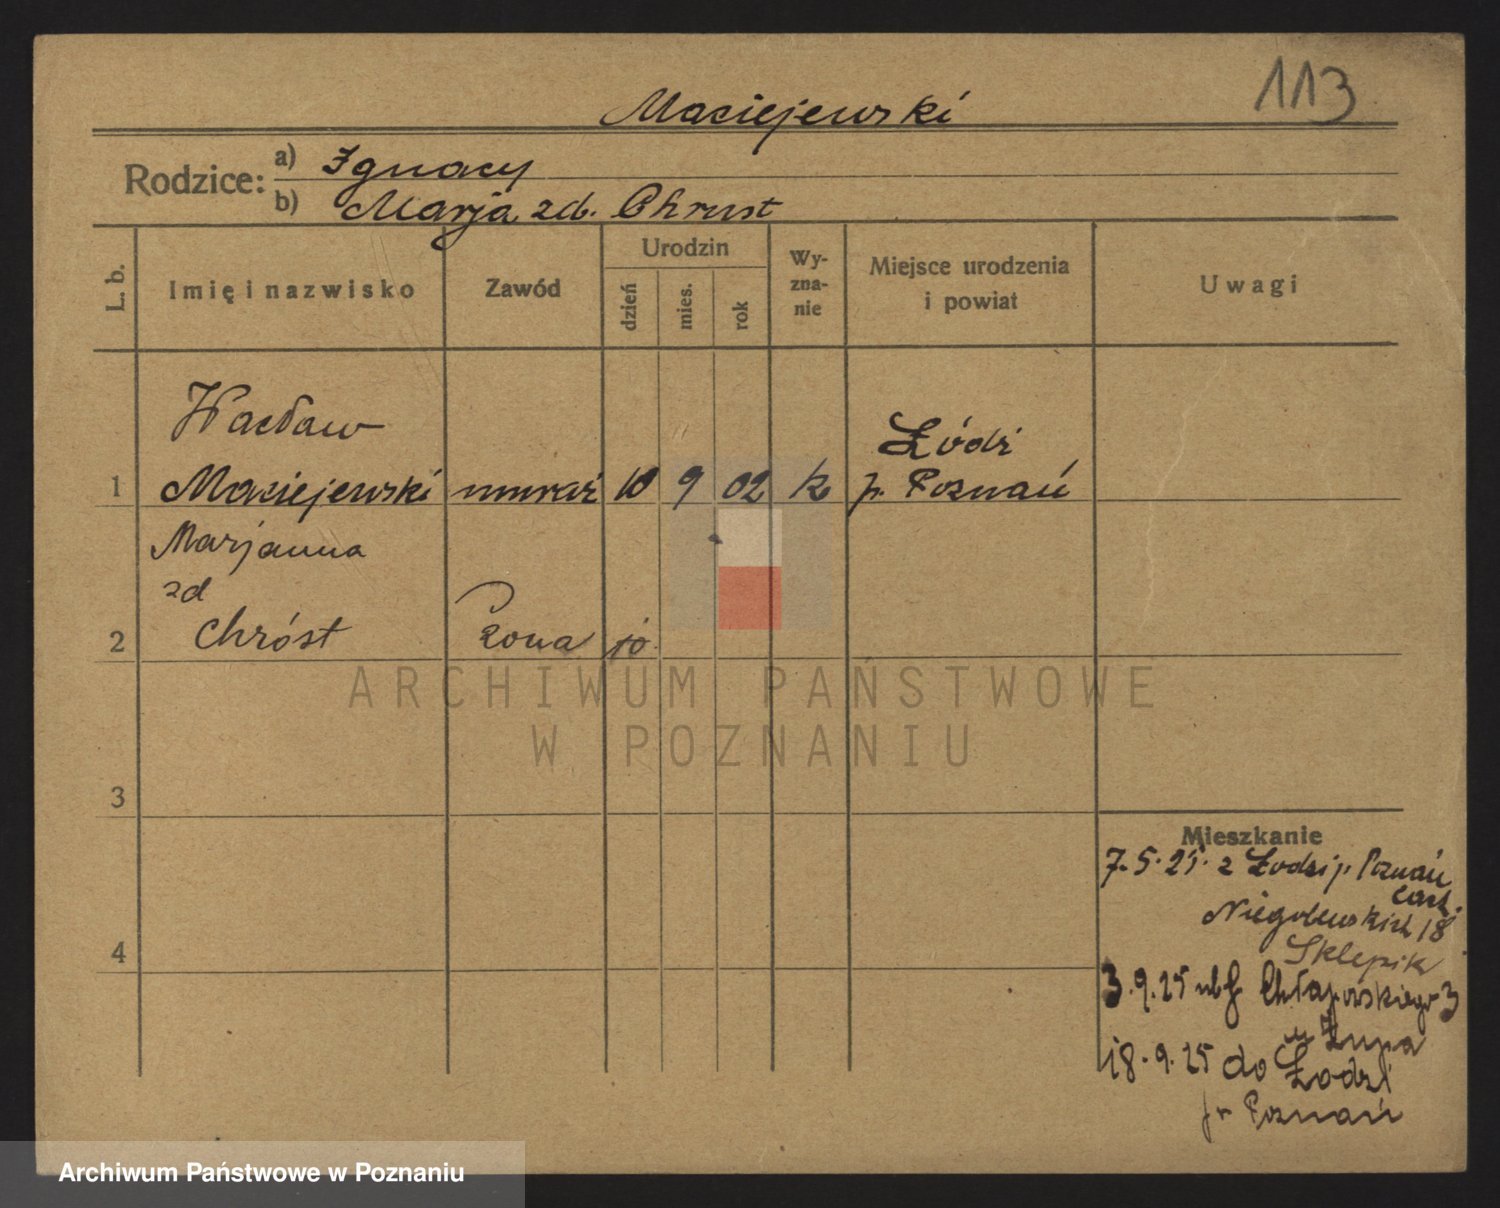 113
Maciejewski
Rodzice: a) Ignacy
b) Marja zd. Chrust
L. b.
Imię i nazwisko
Zawód
Urodzin
dzień
mies.
rok
Wy-
zna-
nie
Miejsce urodzenia
i powiat
Uwagi
Wacław
Łódź
1 Maciejewski murarz 10 9 02 k p. Poznań
Marjanna
zd
2 Chróst żona
ARCHIWUM PAŃSTWOWE
W POZNANIU
3
4
Mieszkanie
7.5.25. z Łodzi p. Poznań
Niegolewskich 18
Sklepik
3.9.25 Chłapowskiego 3
u Żupa
18.9.25 do Łodzi
p. Poznań
Archiwum Państwowe w Poznaniu